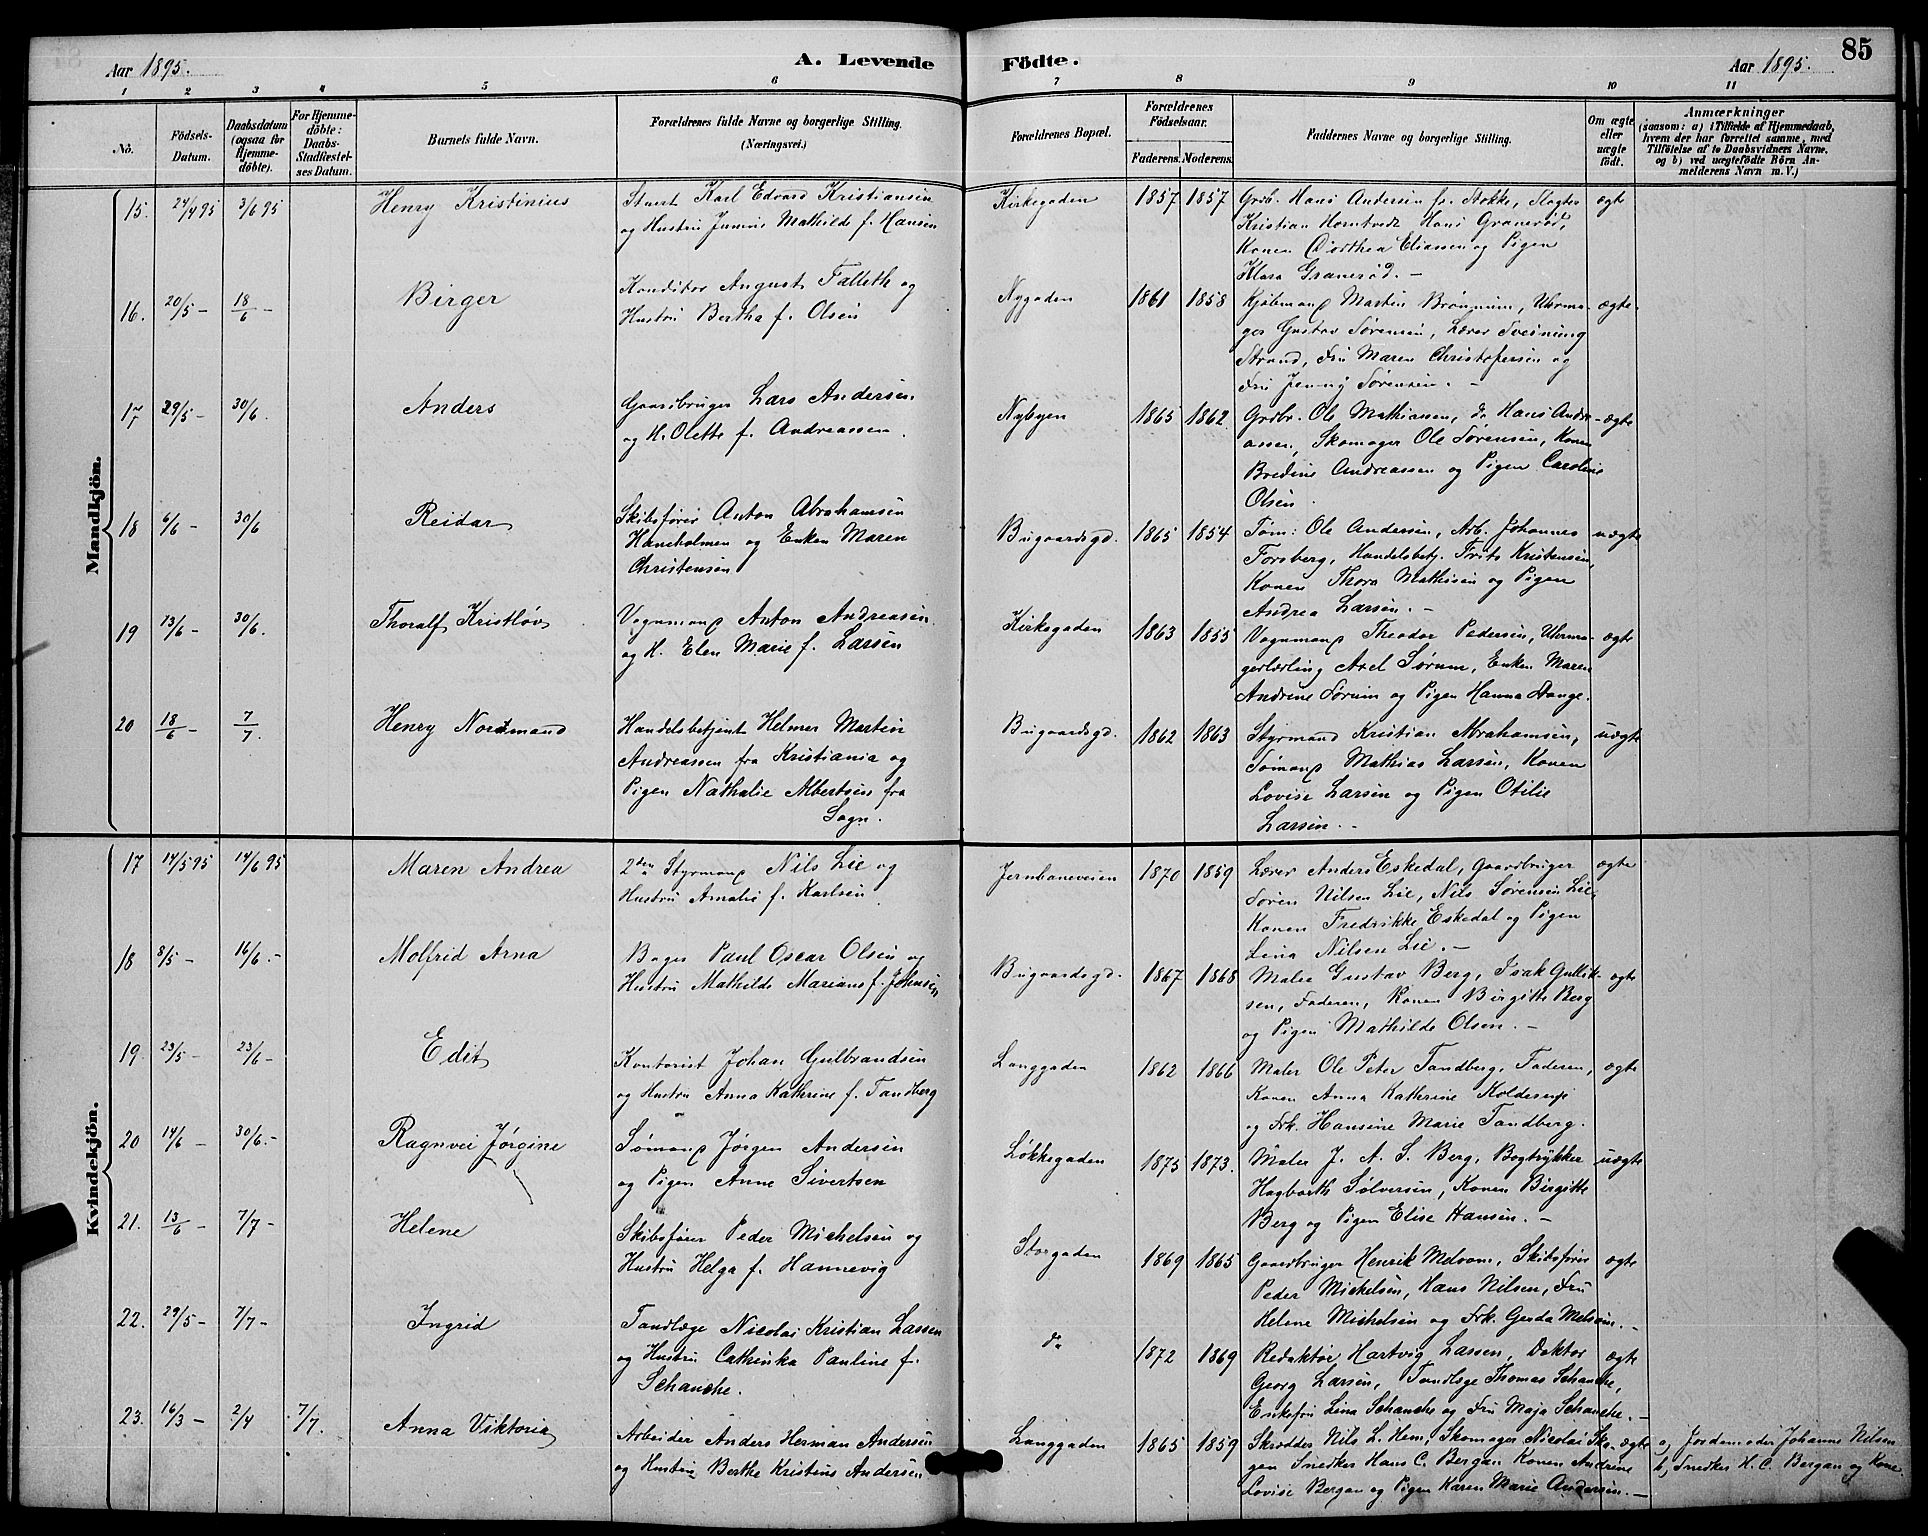 Aar 1895.
A. Levende
Födte.
Aar 1895.
85
1 2 3 4 5 6 7 8 9 10 11
No.
Födsels-Datum.
Daabsdatum (ogsaa for Hjemme-döbte).
For Hjemme-döbte: Daabs-Stadfæstel-ses Datum.
Barnets fulde Navn.
Forældrenes fulde Navne og borgerlige Stilling. (Næringsvei.)
Forældrenes Bopæl.
Forældrenes Födselsaar.
Faderens.
Moderens.
Faddernes Navne og borgerlige Stilling.
Om ægte eller uægte födt.
Anmærkninger
(saasom: a) i Tilfælde af Hjemmedaab,
hvem der har forrettet samme, med
Tilföielse af to Daabsvidners Navne,
og b) ved uægtefödte Börn An-
melderens Navn m. V.)
Mandkjön.
15. 24/4 95 3/6 95 Henry Kristinius
Karl Edvard Kristiansen
og Hustru Mathilde f. Hansen
Kirkegaden 1857 1857
Grdb. Hans Andersen fr. Stokke, Slagter
Kristian Horntvedt Hans Granerød,
Konen Dorthea Eliassen og Pigen
Klara Granerød. –
ægte
16. 20/5 – 18/6 – Birger
Konditor August Falleth og
Hustru Bertha f. Olsen
Nygaden 1861 1858
Kjøbmand Martin Urma-
ger Gustav Sørensen, Lærer Sveinung
Strand, Fru Maren Christofersen og
Fru Jenny Sørensen. –
ægte
17 29/5 – 30/6. Anders
Gaardbruger Lars Andersen
og H. Olette f. Andreassen.
Nybyen 1865 1862
Grdbr. Ole Mathiassen, do Hans Andre-
assen, Skomager Ole Sørensen, Konen
Bredine Andreassen og Pigen Caroline
Olsen
ægte
18 6/6 – 30/6 Reidar
Skibsfører Anton Abrahamsen
Haneholmen og Enken Maren
Christensen
Bugaardsgd. 1865 1854
Tøm: Ole Andersen, Arb. Johannes
Forsberg, Handelsbetj. Frits Kristensen,
Konen Thora Mathisen og Pigen
Andrea Larsen. –
uægte
19 13/6 – 30/6. Thoralf Kristløv
Vognmand Anton Andreasen
og H. Elen Marie f. Larsen
Kirkegaden 1863 1855
Vognmand Theodor Pedersen, Urma-
gerlærling Axel Sørum, Enken Maren
Andrine Sørum og Pigen Hanna Stange.
ægte
20 18/6 – 7/7. Henry Nordmand
Handelsbetjent Helmer Martin
Andreassen fra Kristiania og
Pigen Nathalie Albertsen fra
Sogn.
Bugaardsgd. 1862 1863
Styrmand Kristian Abrahamsen,
Sømand Mathias Larsen, Konen
Lovise Larsen og Pigen Otilie
Larsen. –
uægte
Kvindekjön.
17 14/5 95 14/6 95 Maren Andrea
2den Styrmand Nils Lie og
Hustru Amalie f. Karlsen
Jernbaneveien 1870 1859
Lærer Anders Eskedal, Gaardbruger
Søren Nilsen Lie, Nils Sørensen Lie,
Konen Fredrikke Eskedal og Pigen
Lina Nilsen Lie. –
ægte
18 8/5 – 16/6. – Molfrid Arna
Bager Paul Oscar Olsen og
Hustru Mathilde Mariane f. Johnsen
Bugaardsgd. 1867 1868
Maler Gustav Berg, Isak Gullik-
sen, Faderen, Konen Birgitte Berg
og Pigen Mathilde Olsen. –
ægte
19. 23/5 – 23/6 – Edit
Kontorist Johan Gulbrandsen
og Hustru Anna Kathrine f. Tandberg
Langgaden 1862 1866
Maler Ole Peter Tandberg, Faderen,
Konen Anna Katherine
og Frk. Hansine Marie Tandberg.
ægte
20 14/6 – 30/6. – Ragnvei Jørgine
Sømand Jørgen Andersen
og Pigen Anne Sivertsen
Løkkegaden 1875 1873.
Maler J. A. S. Berg, Bogtrykker
Hagbarth Sølversen, Konen Birgitte
Berg og Pigen Elise Hansen. –
uægte
21. 13/6 – 7/7 – Helene
Skibsfører Peder Michelsen og
Hustru Helga f. Hannevig
Storgaden 1869 1865
Gaardbruger Henrik Melsom, Skibsfører
Peder Mickelsen, Hans Nilsen, Fru
Helene Michelsen og Frk. Gerda Melsom. –
ægte
22. 29/5 – 7/7 – Ingrid
Tandlæge Nicolai Kristian Lassen
og Hustru Cathinka Pauline f.
Schanche.
do 1872 1869
Redaktør Hartvig Lassen, Doktor
Georg Larsen, Tandlæge Thomas Schanche,
Enkefru Lina Schanche og Fru Maja Schanche. –
ægte
23. 16/3 – 2/4 7/7. Anna Viktoria
Arbeider Anders Herman Andersen
og Hustru Berthe Kristine Andersen
Langgaden 1865 1859
Skrædder Nils L. Hem, Skomager Nicolai Sko-
gen Snedker Hans C. Bergan Konen Andrine
Lovise Bergan og Pigen Karen Marie Andersen. –
ægte
a, Jordemoder Johanne Nilsen
b, Snedker H. C. Bergan og Kone